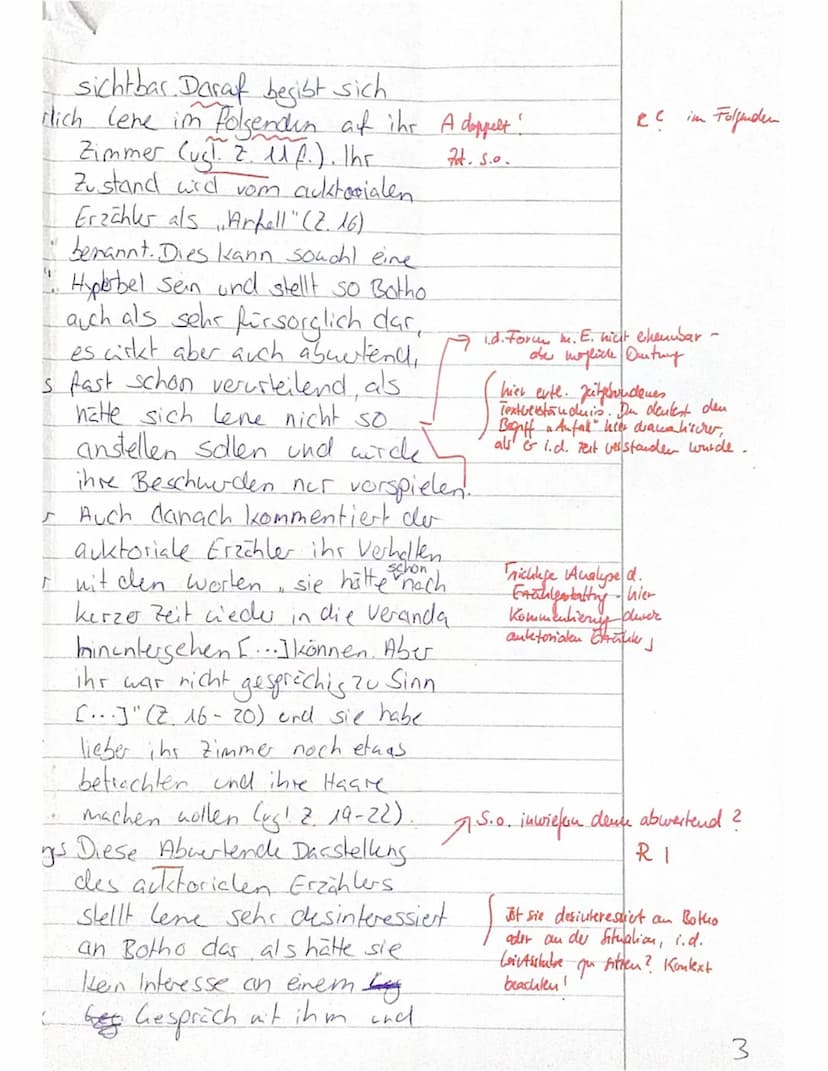 sichtbar. Daraf begibt sich
rlich Lene im folgenden af ihr A doppelt! R? im Folgenden
Zimmer (vgl. Z. 11 f.). Ihr Zt. s.o.
Zustand wird vom auktorialen
Erzähler als „Anfall" (Z. 16)
benannt. Dies kann sowohl eine
Hyperbel sein und stellt so Botho
auch als sehr fürsorglich dar,
es wirkt aber auch abwertend,
i.d. Form m. E. nicht erkennbar -
die mögliche Deutung
s fast schon verurteilend, als
hätte sich Lene nicht so
anstellen sollen und würde
ihre Beschwerden nur vorspielen.
hier evtl. zeitgebundenes
Textverständnis. Du deutest den
Begriff „Anfall" hier dramatischer,
als er i.d. Zeit verstanden wurde.
r Auch danach kommentiert der
auktoriale Erzähler ihr Verhalten
schon
r mit den Worten „sie hätte nach
kurzer Zeit wieder in die Veranda
hinuntergehen [...] können. Aber
richtige Analyse d.
Erzählgestaltung - hier
Kommentierung durch
auktorialen Erzähler
ihr war nicht gesprächig zu Sinn
[...]" (Z. 16 - 20) und sie habe
lieber ihr Zimmer noch etwas
betrachten und ihre Haare
machen wollen (vgl. Z. 19-22).
s.o. inwiefern denn abwertend?
ngs Diese Abwertende Darstellung R I
des auktorialen Erzählers
stellt Lene sehr desinteressiert
an Botho dar, als hätte sie
kein Interesse an einem
Gespräch mit ihm und
Ist sie desinteressiert an Botho
oder an der Situation, i.d.
zu sitzen? Kontext
beachten!
3